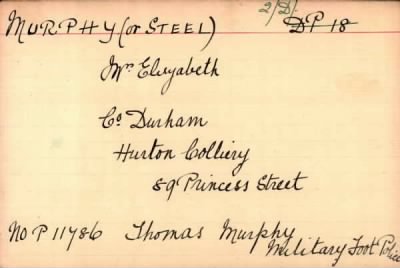 MURPHY (or STEEL)
DP 18
Mrs Elizabeth
Co Durham
Hurton Colliery
89 Princess Street
No P 11786 Thomas Murphy
Military Foot Police